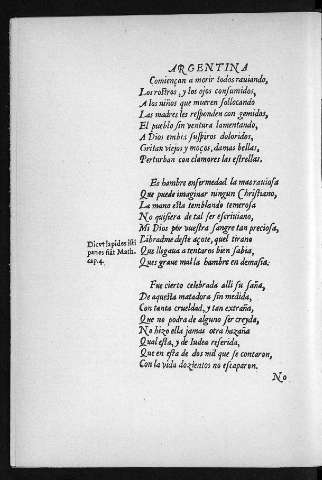 ARGENTINA
Comiençan a morir todos rauiando,
Los rostros, y los ojos consumidos,
A los niños que mueren sollocando
Las madres les responden con gemidos,
El pueblo sin ventura lamentando,
A Dios embia suspiros doloridos,
Gritan viejos y moços, damas bellas,
Perturban con clamores las estrellas.
Es hambre enfermedad la mas rauiosa
Que puede imaginar ningun Christiano,
La mano esta temblando temerosa
No quisiera de tal ser escriuano,
Mi Dios por vuestra sangre tan preciosa,
Libradme deste açote, quel tirano
Que llegaua a tentaros bien sabia,
Ques graue mal la hambre en demasia.
Dicvt lapides isti
panes fiãt Math.
cap. 4.
Fue cierto celebrada alli su saña,
De aquesta matadora sin medida,
Con tanta crueldad, y tan extraña,
Que no podra de alguno ser creyda,
No hizo ella jamas otra hazaña
Qual esta, y de Iudea referida,
Que en esta de dos mil que se contaron,
Con la vida dozientos no escaparon.
No